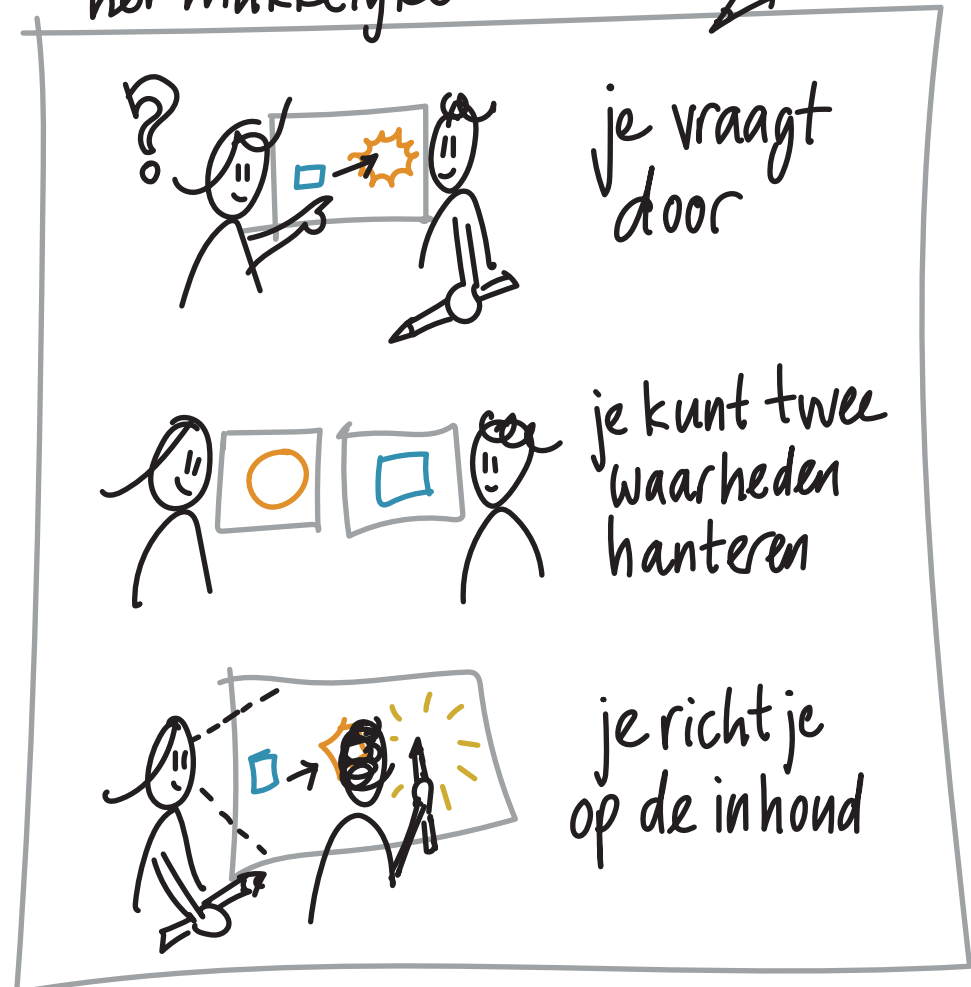 het makkelijke
?
je vraagt
door
je kunt twee
waarheden
hanteren
je richt je
op de inhoud